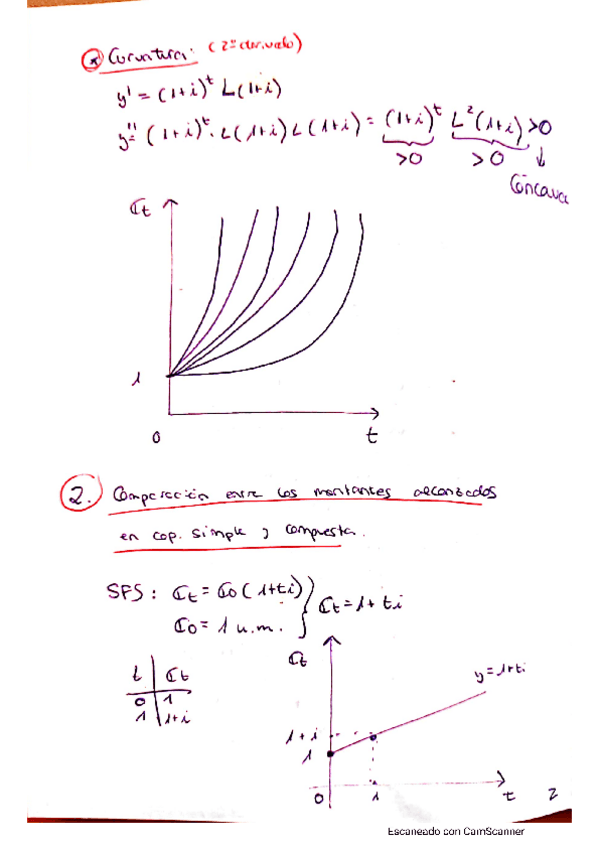 * Curvatura: (2ª derivada)
y' = (1+i)^t L(1+i)
y'' = (1+i)^t · L(1+i) L(1+i) = (1+i)^t L²(1+i) >0
>0 >0 ↓
Cóncava
Ct
1
0 t
2. Comparación entre los montantes alcanzados
en cap. simple y compuesta.
SFS: Ct = Co (1+ti) } Ct = 1 + ti
Co = 1 u.m.
t | Ct
0 | 1
1 | 1+i
Ct
y = 1+ti
1+i
1
0 1 t
2
Escaneado con CamScanner